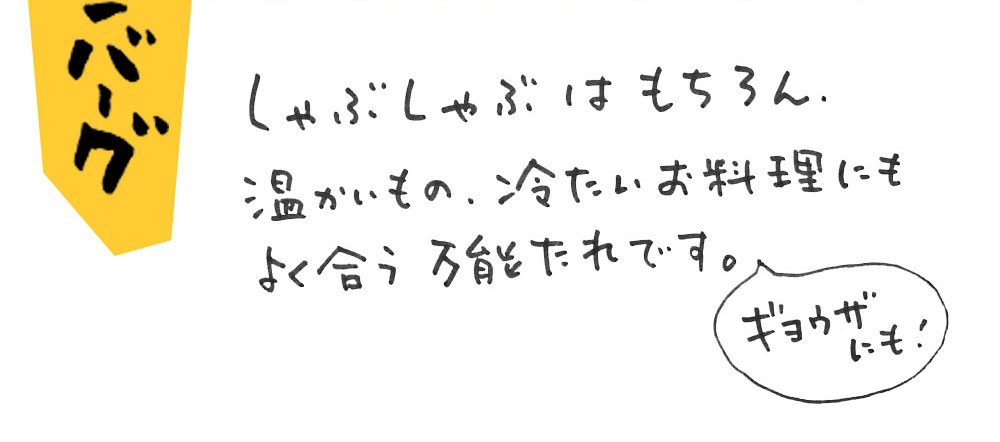 バーグ
しゃぶしゃぶはもちろん、
温かいもの、冷たいお料理にも
よく合う万能たれです。
ギョウザ
にも!